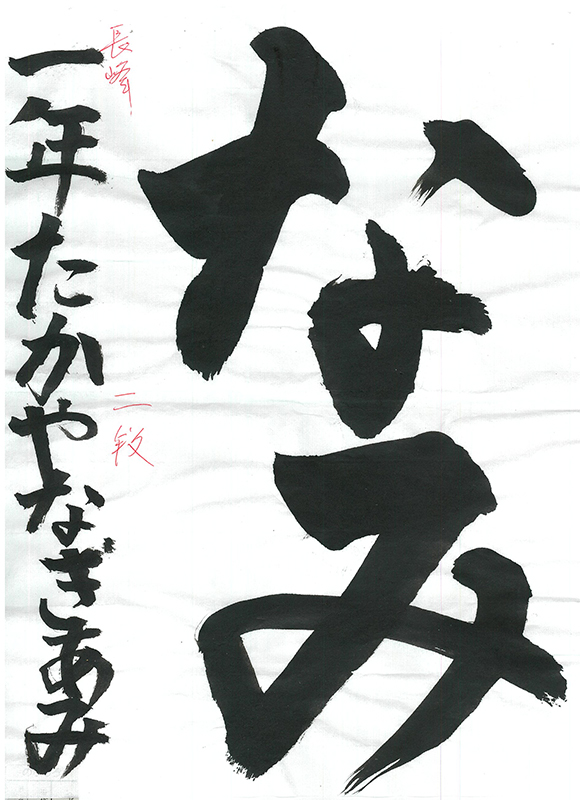 なみ
長峰
二段
一年たかやなぎあみ